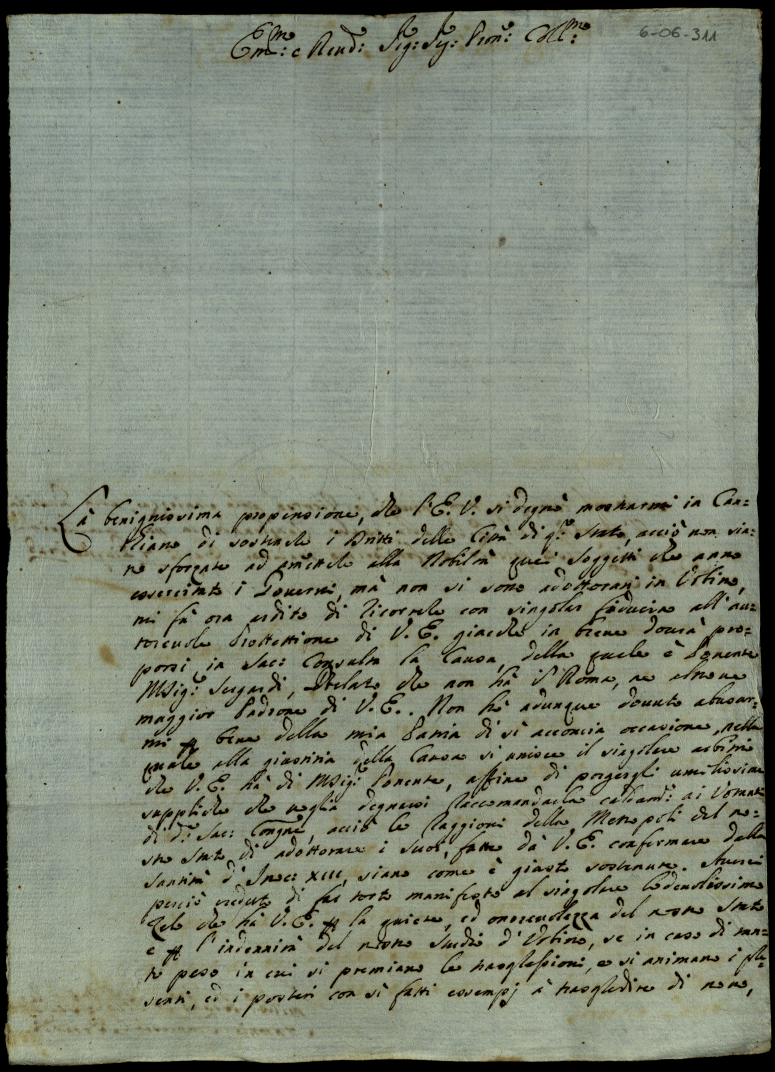 6-06-311
Em̃o: e Reṽd: Sig: Sig: Pron̄: Coll̃mo:
La benignissima propensione, che l'E. V. si degnò mostrarmi in Can=
tiano di sostenere i Dritti delle Città di q.to Stato, acciò non sia=
no sforzate ad ametterle alla Nobiltà quei Soggetti che anno
essercitato i Governi, mà non si sono adottorati in Urbino,
mi fà ora ardito di ricorrere con singolar fiducia all'au=
torevole Protettione di V. E. giacche in breve dovrà pro=
porsi in Sac: Consulta la Causa, della quale è Ponente
Msig.r Sergardi, Prelato che non hà in Roma, ne altrove
maggior Padrone di V. E.. Non hò adunque dovuto abusar=
mi p bene della mia Patria di sì acconcia occasione, nella
quale alla giustitia della Causa si unisce il singolare arbitrio
che V. E. hà di Msig.r Ponente, affine di porgergli umilissime
suppliche che voglia degnarsi raccomandarla caldam.te ai Votanti
di d.a Sac: Congne, acciò le Raggioni della Metropoli del no=
stro Stato di adottorare i suoi, fatte dà V. E. confermare dalla
Santità d'Inno: XIII, siano come è giusto sostenute. Averei
perciò creduto di far torto manifesto al singolare lodevolissimo
Zelo che hà V. E. p la quiete, ed onorevolezza del nostro Stato
e p l'indennità del nostro Studio d'Urbino, se in caso di tan=
to peso in cui si premiano le trasgressioni, e si animano i pre=
senti, ed i posteri con sì fatti essempj à trasgredire di nuovo,